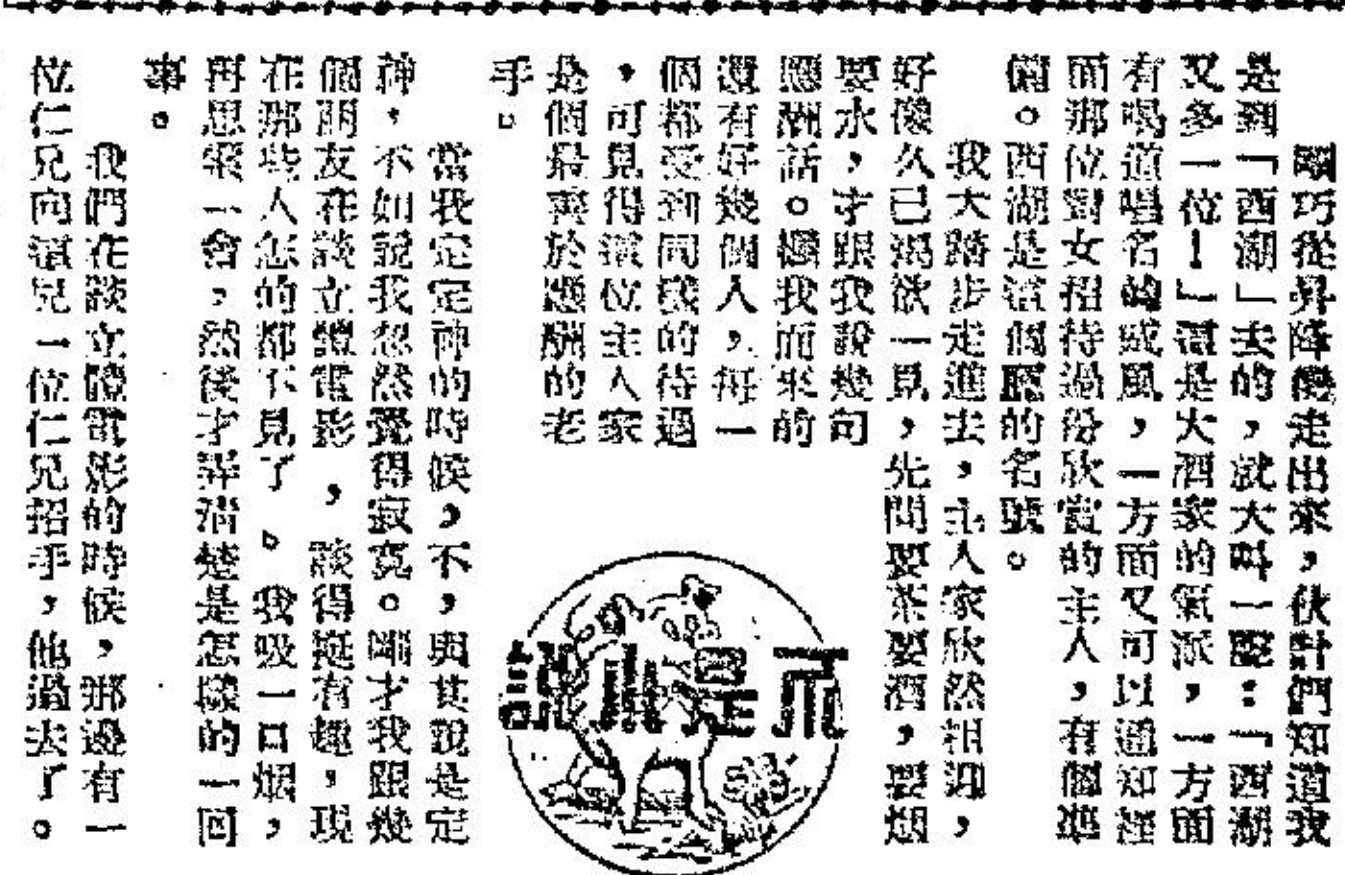 剛巧從昇降機走出來，伙計們知道我
是到「西湖」去的，就大叫一聲：「西湖
又多一位！」還是大酒家的氣派，一方面
有喝道唱名的威風，一方面又可以通知裡
面那位對女招待過份欣賞的主人，有個準
備。西湖是這個廳的名號。
我大踏步走進去，主人家欣然相迎，
好像久已渴欲一見，先問要茶要酒，要烟
要水，才跟我說幾句
應酬話。繼我而來的
還有好幾個人，每一
個都受到同樣的待遇
，可見得這位主人家
是個最善於應酬的老
手。
當我定定神的時候，不，與其說是定
神，不如說我忽然覺得寂寞。剛才我跟幾
個朋友在談立體電影，談得挺有趣，現
在那些人怎的都不見了。我吸一口烟，
再思索一會，然後才弄清楚是怎樣的一回
事。
我們在談立體電影的時候，那邊有一
位仁兄向這兒一位仁兄招手，他過去了。